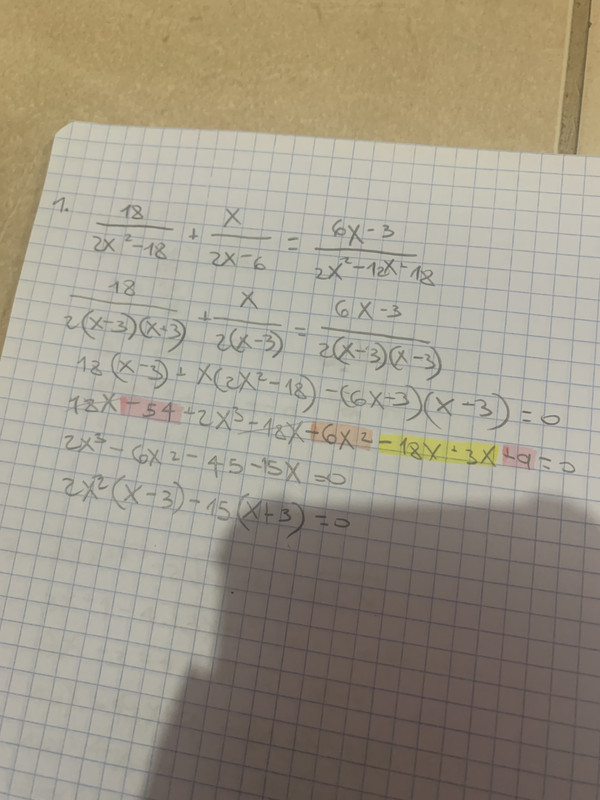 1. 18/(2x²-18) + x/(2x-6) = (6x-3)/(2x²-12x-18)
18/(2(x-3)(x+3)) + x/(2(x-3)) = (6x-3)/(2(x-3)(x-3))
18(x-3) + x(2x²-18) -(6x-3)(x-3) = 0
18x - 54 + 2x³ - 18x - 6x² - 18x - 3x + 9 = 0
2x³ - 6x² - 45 - 15x = 0
2x²(x-3) - 15(x+3) = 0